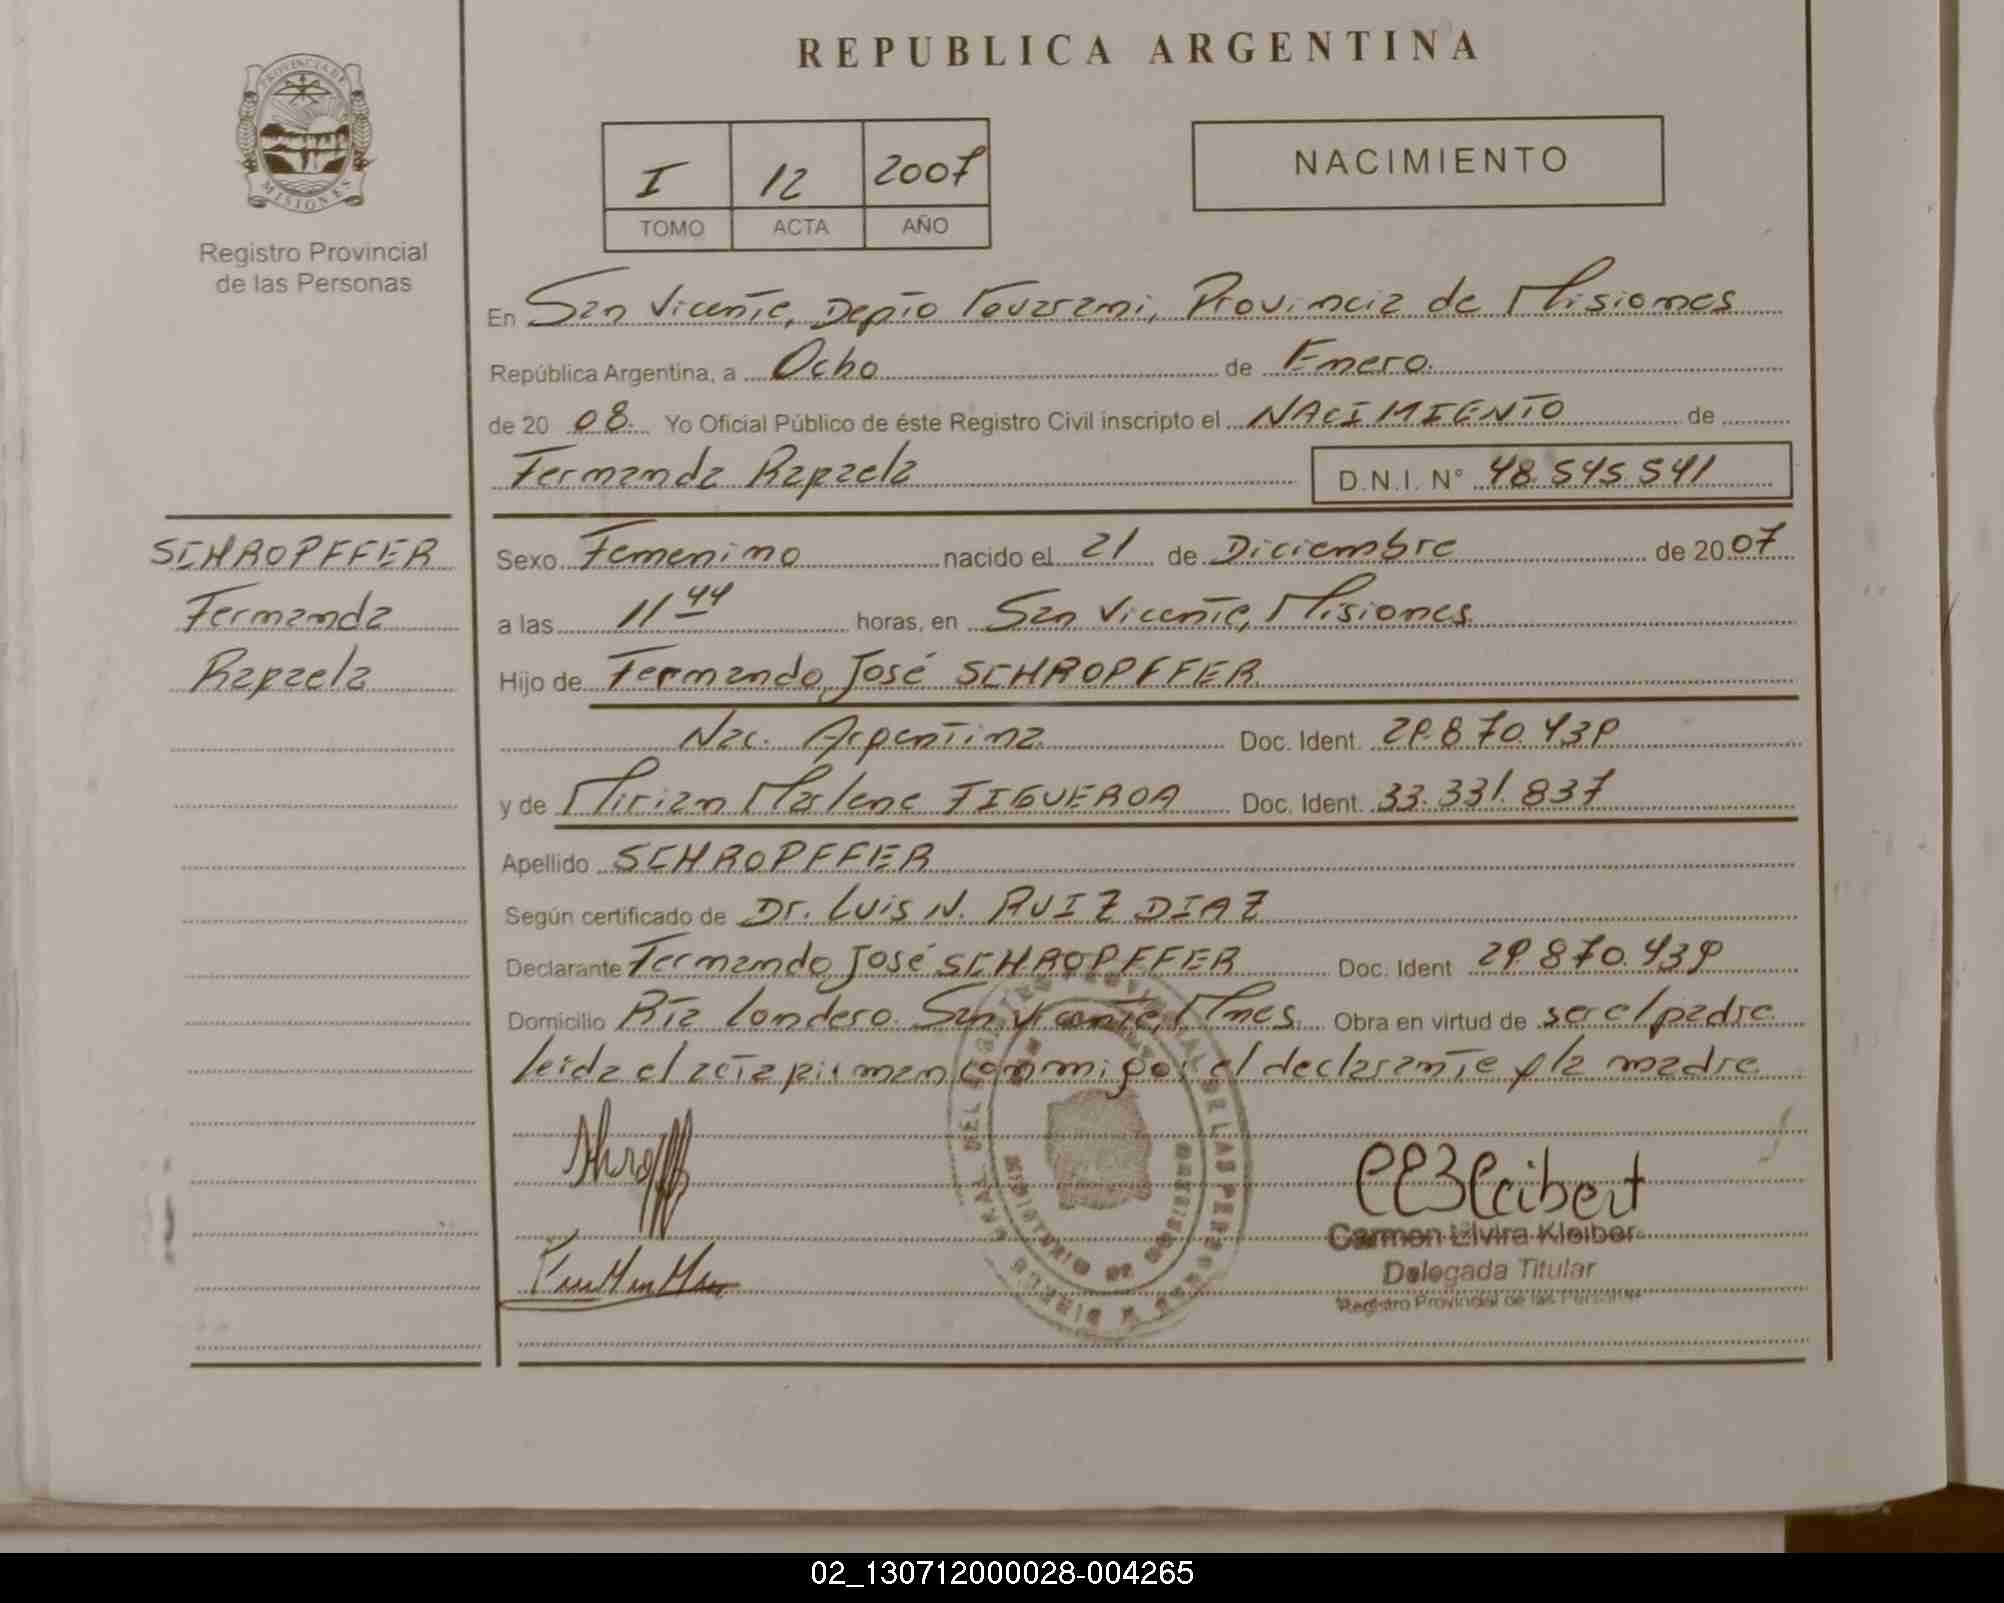 REPUBLICA ARGENTINA
PROVINCIA DE
MISIONES
Registro Provincial
de las Personas
I 12 2007
TOMO ACTA AÑO
NACIMIENTO
En San Vicente, Depto Guarani, Provincia de Misiones
República Argentina, a Ocho de Enero.
de 20 08. Yo Oficial Público de éste Registro Civil inscripto el NACIMIENTO de
Fernanda Rafaela D.N.I. N° 48.545.541
SCHROPFFER
Fernanda
Rafaela
Sexo Femenino nacido el 21 de Diciembre de 20 07
a las 11 44 horas, en San Vicente, Misiones.
Hijo de Fernando José SCHROPFFER
Nac. Argentina Doc. Ident. 29.870.439
y de Mirian Marlene FIGUEROA Doc. Ident. 33.331.837
Apellido SCHROPFFER
Según certificado de Dr. Luis N. RUIZ DIAZ
Declarante Fernando José SCHROPFFER Doc. Ident 29.870.439
Domicilio Londero. San Vicente, Mnes. Obra en virtud de ser el padre
leida el acta firman conmigo el declarante y la madre
Carmen Elvira Kleiber
Delegada Titular
Registro Provincial de las Personas
02_130712000028-004265